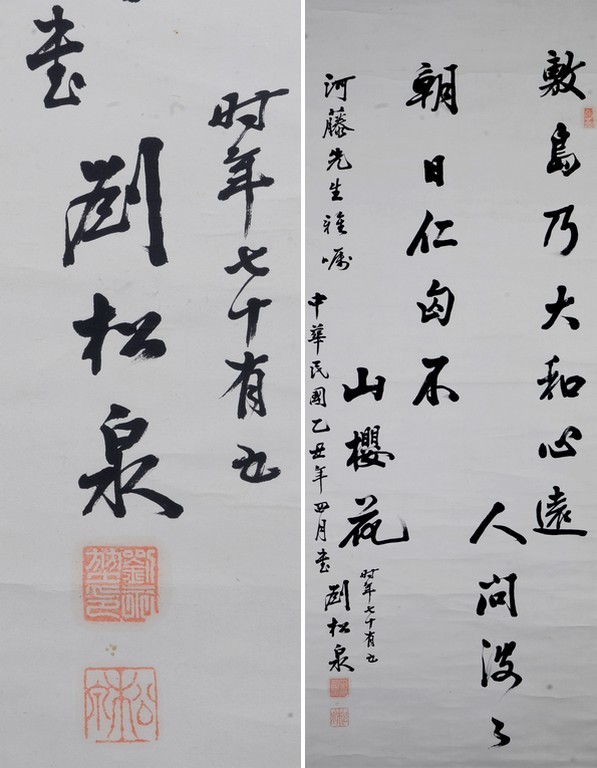 时年七十有五
書 劉松泉
松泉
敷島乃大和心遠
人問波ゝ
朝日仁匂不
山櫻花
河藤先生雅嘱
中華民國乙丑年四月書 劉松泉
时年七十有五